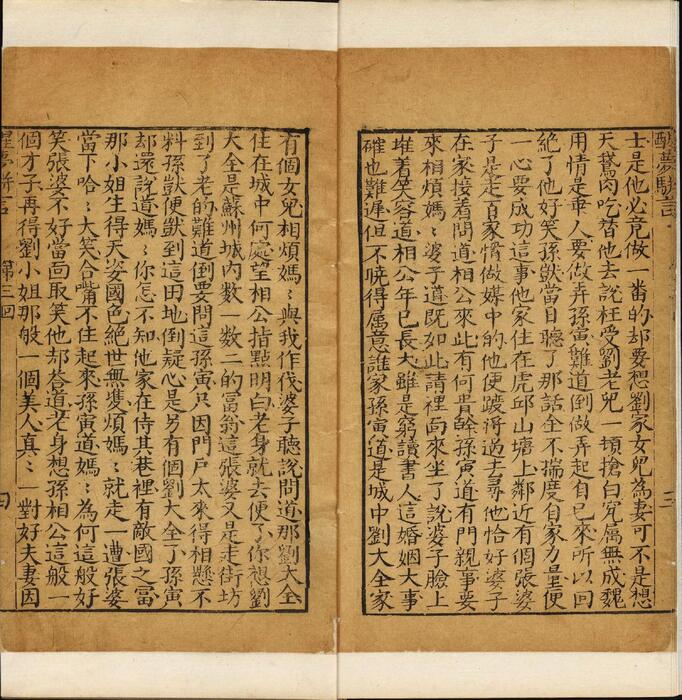 醒夢駢言
三
士是他必竟做一番的却要想劉家女兒為妻可不是想
天鵝肉吃替他去說枉受劉老兒一頓搶白究屬無成魏
用情是乖人要做弄孫寅難道倒做弄起自己來所以回
絶了他好笑孫獃當日聽了那話全不揣度自家力量便
一心要成功這事他家住在虎邱山塘上鄰近有個張婆
子是走百家慣做媒中的他便踱將過去尋他恰好婆子
在家接着問道相公來此有何貴幹孫寅道有門親事要
來相煩媽〻婆子道既如此請裡面來坐了說婆子臉上
堆着笑容道相公年已長大雖是窮讀書人這婚姻大事
確也難遲但不曉得属意誰家孫寅道是城中劉大全家
有個女兒相煩媽〻與我作伐婆子聽說問道那劉大全
住在城中何處望相公指點明白老身就去便了你想劉
大全是蘇州城内數一數二的富翁這張婆又是走街坊
到了老的難道倒要問這孫寅只因門戶太來得相懸不
料孫獃便獃到這田地倒疑心是另有個劉大全了孫寅
却還說道媽〻你怎不知他家在侍其巷裡有敵國之富
那小姐生得天姿國色絶世無雙煩媽〻就走一遭張婆
當下哈〻大笑合嘴不住起來孫寅道媽〻為何這般好
笑張婆不好當面取笑他却荅道老身想孫相公這般一
個才子再得劉小姐那般一個美人真〻一對好夫妻因
醒夢駢言
第三回
四